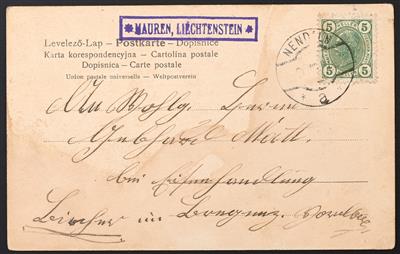 * MAUREN, LIECHTENSTEIN *
Levelező-Lap — Postkarte — Dopisnice
Karta korespondencyjna — Cartolina postale
Dopisnica — Carte postale
Union postale universelle — Weltpostverein
NENDELN
a
5 5
5 5
An Wohlg. Herrn
Gebhard
bei Eisenhandlung
in Bregenz. Vorarlberg